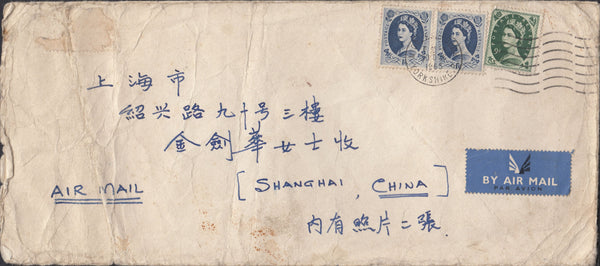 上海市
紹兴路九十号三樓
金劍華女士收
AIR MAIL
[SHANGHAI, CHINA]
内有照片二張
BY AIR MAIL
PAR AVION
YORKSHIRE